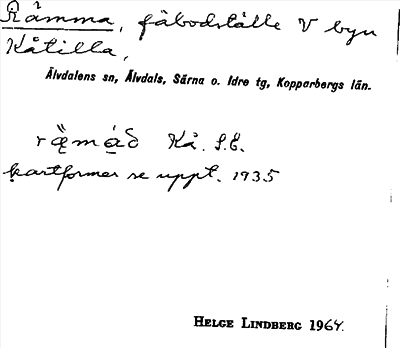 Råmma, fäbodställe V byn
Kåtilla,
Älvdalens sn, Älvdals, Särna o. Idre tg, Kopparbergs län.
Kå. S.E.
kartformer se uppt. 1935
HELGE LINDBERG 1964.